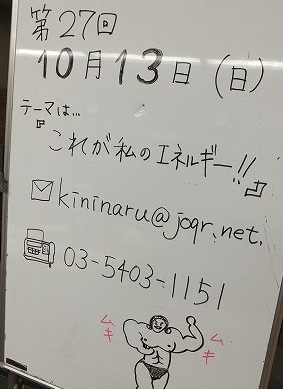 第27回
10月13日(日)
テーマは…
『これが私のエネルギー!!』
kininaru@joqr.net.
03-5403-1151
ムキ
ムキ